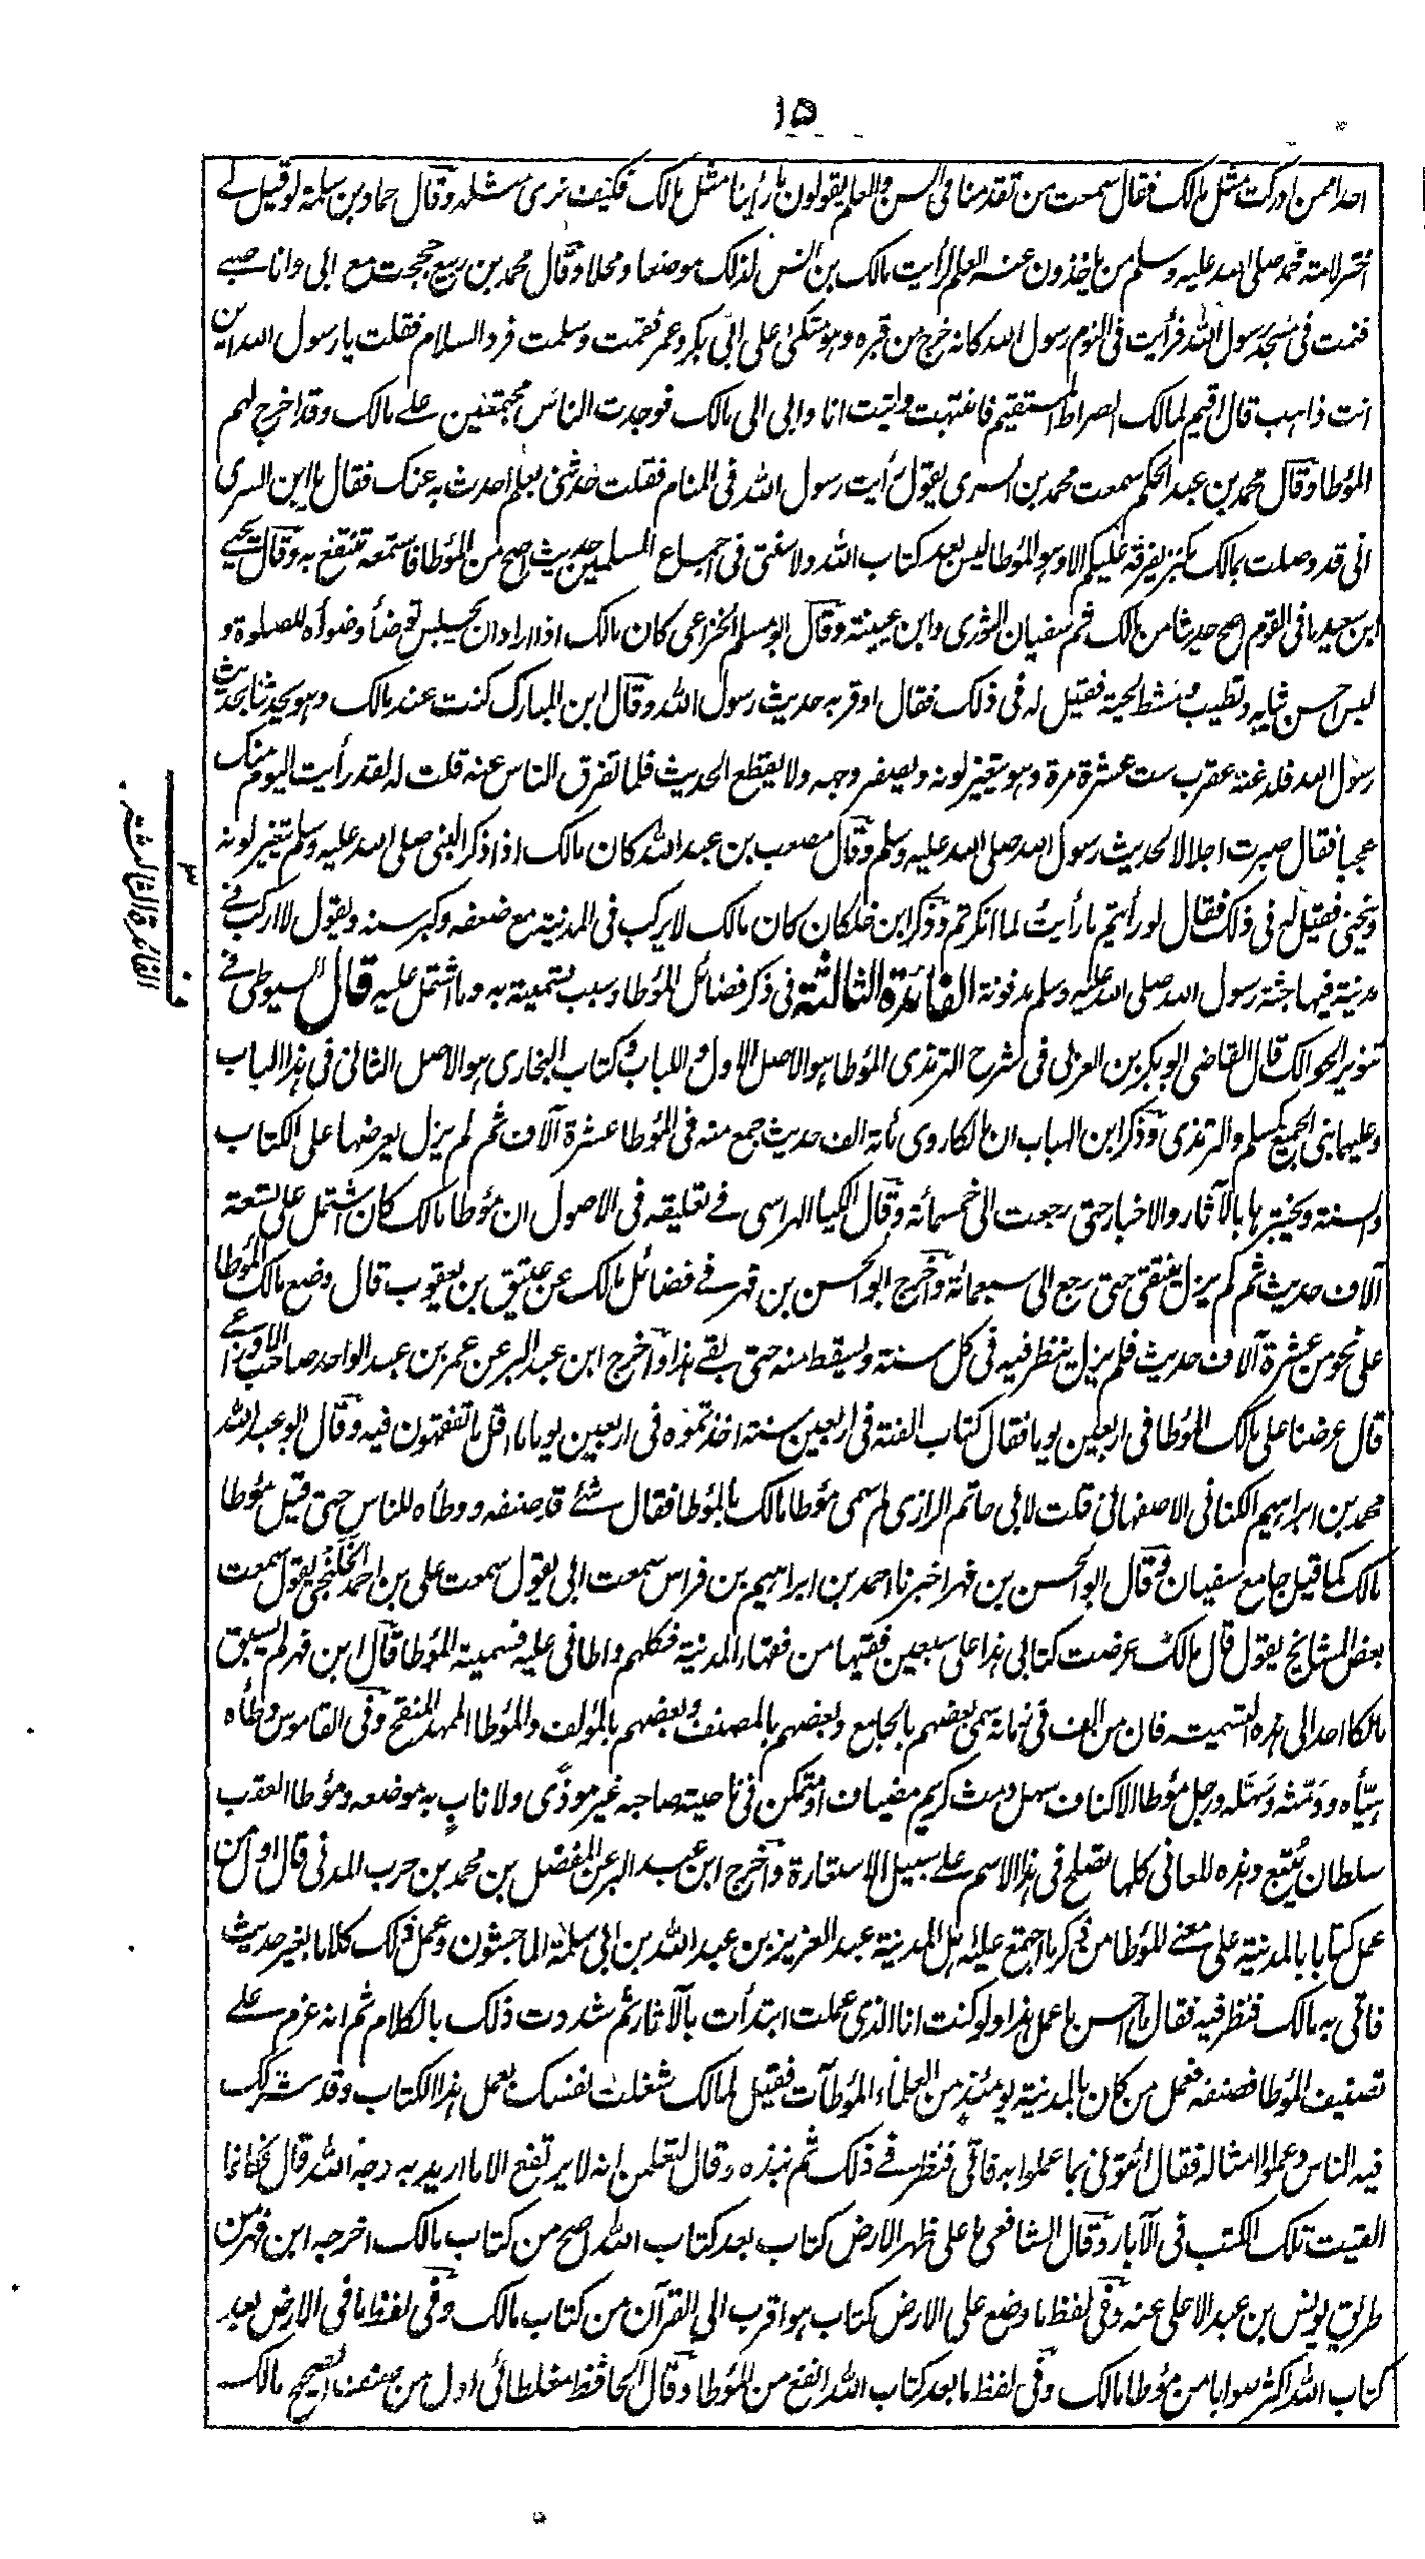 ١٥
احدا ممن ادركت مثل مالك فقال سمعت من تقدمنا فى السن والعلم يقولون ما رأينا مثل مالك فكيف نرى مثله وقال حماد بن سلمة لو قيل لى
اختر لامة محمد صلى الله عليه وسلم من ياخذون عنه العلم لرأيت مالك بن انس لذلك موضعا ومحلا وقال محمد بن ربيع حججت مع ابى وانا صبى
فنمت فى مسجد رسول الله فرأيت فى النوم رسول الله كانه خرج من قبره وهو متكئ على ابى بكر وعمر فقمت وسلمت فرد السلام فقلت يا رسول الله اين
انت ذاهب قال اقيم لمالك الصراط المستقيم فانتبهت واتيت انا وابى الى مالك فوجدت الناس مجتمعين على مالك وقد اخرج لهم
المؤطا وقال محمد بن عبد الحكم سمعت محمد بن السرى يقول رأيت رسول الله فى المنام فقلت حدثنى بعلم احدث به عنك فقال يا ابن السرى
انى قد وصلت بمالك بكنز يفرقه عليكم الا وهو المؤطا ليس بعد كتاب الله ولا سنتى فى اجماع المسلمين حديث اصح من المؤطا فاستمعه تنتفع به وقال يحيى
ابن سعيد ما فى القوم اصح حديثا من مالك ثم سفيان الثورى وابن عيينة وقال ابو مسلم الخزاعى كان مالك اذا اراد ان يجلس توضأ وضوأه للصلوة و
لبس احسن ثيابه وتطيب ومشط لحيته فقيل له فى ذلك فقال اوقر به حديث رسول الله وقال ابن المبارك كنت عند مالك وهو يحدثنا بحديث
رسول الله فلدغته عقرب ست عشرة مرة وهو يتغير لونه ويصفر وجهه ولا يقطع الحديث فلما تفرق الناس عنه قلت له لقد رأيت اليوم منك
عجبا فقال صبرت اجلالا لحديث رسول الله صلى الله عليه وسلم وقال مصعب بن عبد الله كان مالك اذا ذكر النبى صلى الله عليه وسلم يتغير لونه
وينحنى فقيل له فى ذلك فقال لو رأيتم ما رأيت لما انكرتم وذكر ابن خلكان كان مالك لا يركب فى المدينة مع ضعفه وكبر سنه ويقول لا اركب فى
مدينة فيها جثة رسول الله صلى الله عليه وسلم مدفونة الفائدة الثالثة فى ذكر فضائل المؤطا وسبب تسميته به وما اشتمل عليه قال السيوطى فى
ف ٣ الفائدة الثالثة
تنوير الحوالك قال القاضى ابو بكر بن العربى فى شرح الترمذى المؤطا هو الاصل الاول واللباب وكتاب البخارى هو الاصل الثانى فى هذا الباب
وعليهما بنى الجميع كمسلم والترمذى وذكر ابن الهباب ان مالكا روى مأة الف حديث جمع منه فى المؤطا عشرة آلاف ثم لم يزل يعرضها على الكتاب
والسنة ويختبرها بالآثار والاخبار حتى رجعت الى خمسمائة وقال الكيا الهراسى فى تعليقه فى الاصول ان مؤطا مالك كان اشتمل على تسعة
آلاف حديث ثم لم يزل ينتقى حتى رجع الى سبعمائة واخرج ابو الحسن بن فهر فى فضائل مالك عن عتيق بن يعقوب قال وضع مالك المؤطا
على نحو من عشرة آلاف حديث فلم يزل ينظر فيه فى كل سنة ويسقط منه حتى بقى هذا واخرج ابن عبد البر عن عمر بن عبد الواحد صاحب الاوزاعى
قال عرضنا على مالك المؤطا فى اربعين يوما فقال كتاب الفته فى اربعين سنة اخذتموه فى اربعين يوما ما اقل ما تفقهون فيه وقال ابو عبد الله
محمد بن ابراهيم الكنانى الاصفهانى قلت لابى حاتم الرازى لم سمى مؤطا مالك بالمؤطا فقال شئ قد صنفه ووطأه للناس حتى قيل مؤطا
مالك كما قيل جامع سفيان وقال ابو الحسن بن فهر اخبرنا احمد بن ابراهيم بن فراس سمعت ابى يقول سمعت على بن احمد الخلنجى يقول سمعت
بعض المشائخ يقول قال مالك عرضت كتابى هذا على سبعين فقيها من فقهاء المدينة فكلهم واطانى عليه فسميته المؤطا قال ابن فهر لم يسبق
مالكا احد الى هذه التسمية فان من الف فى زمانه سمى بعضهم بالجامع وبعضهم بالمصنف وبعضهم بالمؤلف والمؤطا الممهد المنقح وفى القاموس وطأه
هيّأه ودَمّثه وسَهّله ورجل مؤطا الاكناف سهل دمث كريم مضياف او متمكن فى ناحيته صاحبه غير موذًى ولا نابٍ به موضعه ومؤطا العقب
سلطان يُتّبع وهذه المعانى كلها تصلح فى هذا الاسم على سبيل الاستعارة واخرج ابن عبد البر عن المفضل بن محمد بن حرب المدنى قال اول من
عمل كتابا بالمدينة على معنى المؤطا من ذكر ما اجتمع عليه اهل المدينة عبد العزيز بن عبد الله بن ابى سلمة الماجشون وعمل ذلك كلاما بغير حديث
فاتى به مالك فنظر فيه فقال ما احسن ما عمل هذا ولو كنت انا الذى عملت ابتدأت بالآثار ثم شددت ذلك بالكلام ثم انه عزم على
تصنيف المؤطا فصنفه فعمل من كان بالمدينة يومئذٍ من العلماء المؤطآت فقيل لمالك شغلت نفسك بعمل هذا الكتاب وقد شركك
فيه الناس وعملوا امثاله فقال ائتونى بما عملوا به فاتى فنظر فى ذلك ثم نبذه وقال لتعلمن انه لا يرتفع الا ما اريد به وجه الله قال فكانما
القيت تلك الكتب فى الآبار وقال الشافعى ما على ظهر الارض كتاب بعد كتاب الله اصح من كتاب مالك اخرجه ابن فهر من
طريق يونس بن عبد الاعلى عنه وفى لفظ ما وضع على الارض كتاب هو اقرب الى القرآن من كتاب مالك وفى لفظ ما فى الارض بعد
كتاب الله اكثر صوابا من مؤطا مالك وفى لفظ ما بعد كتاب الله انفع من المؤطا وقال الحافظ مغلطائى اول من صنف الصحيح مالك